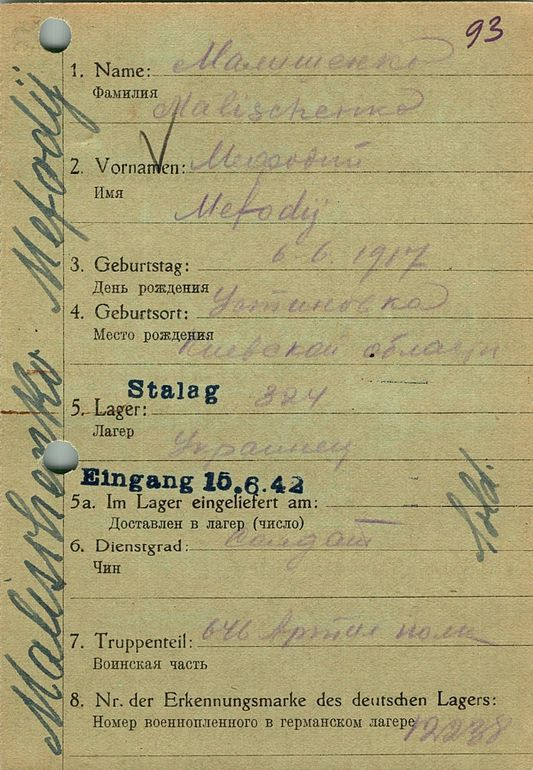 93
1. Name: Малишенко
Фамилия
Malischenko
2. Vornamen: Мефодий
Имя
Mefodij
3. Geburtstag: 6. 6. 1917
День рождения
4. Geburtsort: Устиновка
Место рождения
Киевской области
Stalag
5. Lager: 324
Лагер
Украинец
Eingang 15.6.42
5a. Im Lager eingeliefert am:
Доставлен в лагер (число)
6. Dienstgrad: солдат
Чин
Sold.
7. Truppenteil: 646 Артил полк
Воинская часть
8. Nr. der Erkennungsmarke des deutschen Lagers:
Номер военнопленного в германском лагере 12238
Malischenko Mefodij